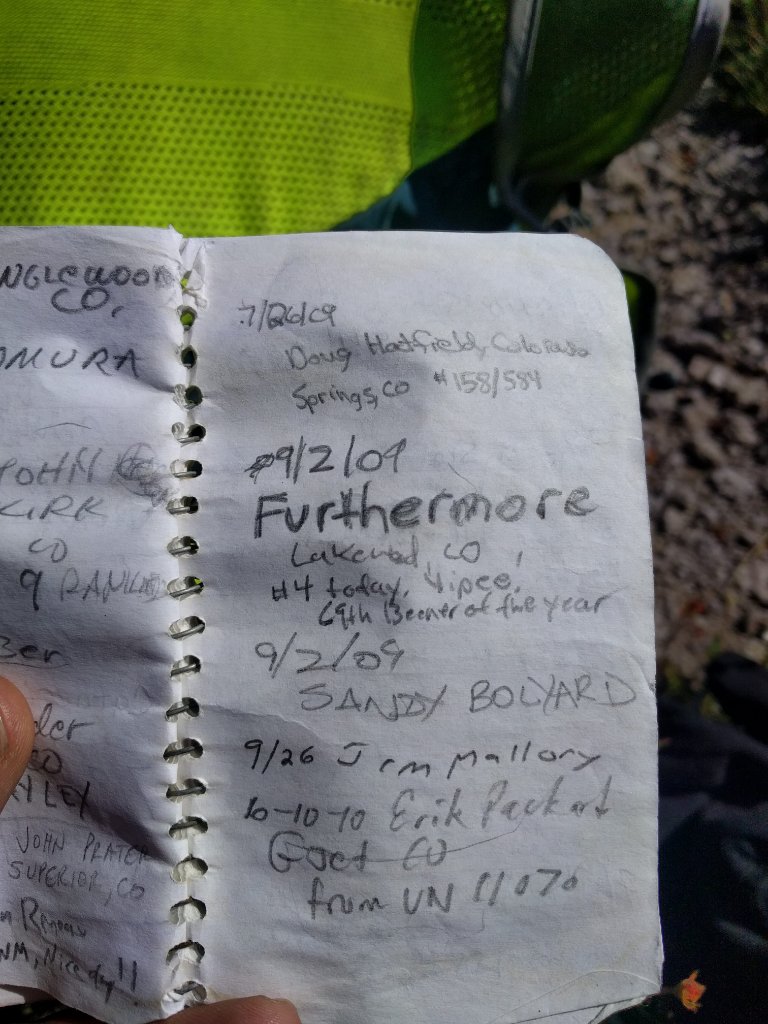 NGLEWOOD
CO,
OMURA
JOHN
KIRK
CO
9 RANKED
der
CO
JOHN PRATER
SUPERIOR, CO
NM, Nice day!!
7/26/09
Doug Hatfield, Colorado
Springs, CO #158/584
9/2/09
Furthermore
Lakewood, CO
#4 today, 4 ipee!
69th 13ener of the year
9/2/09
SANDY BOLYARD
9/26 Jim Mallory
10-10-10 Erik Packard
CO
from UN 11070